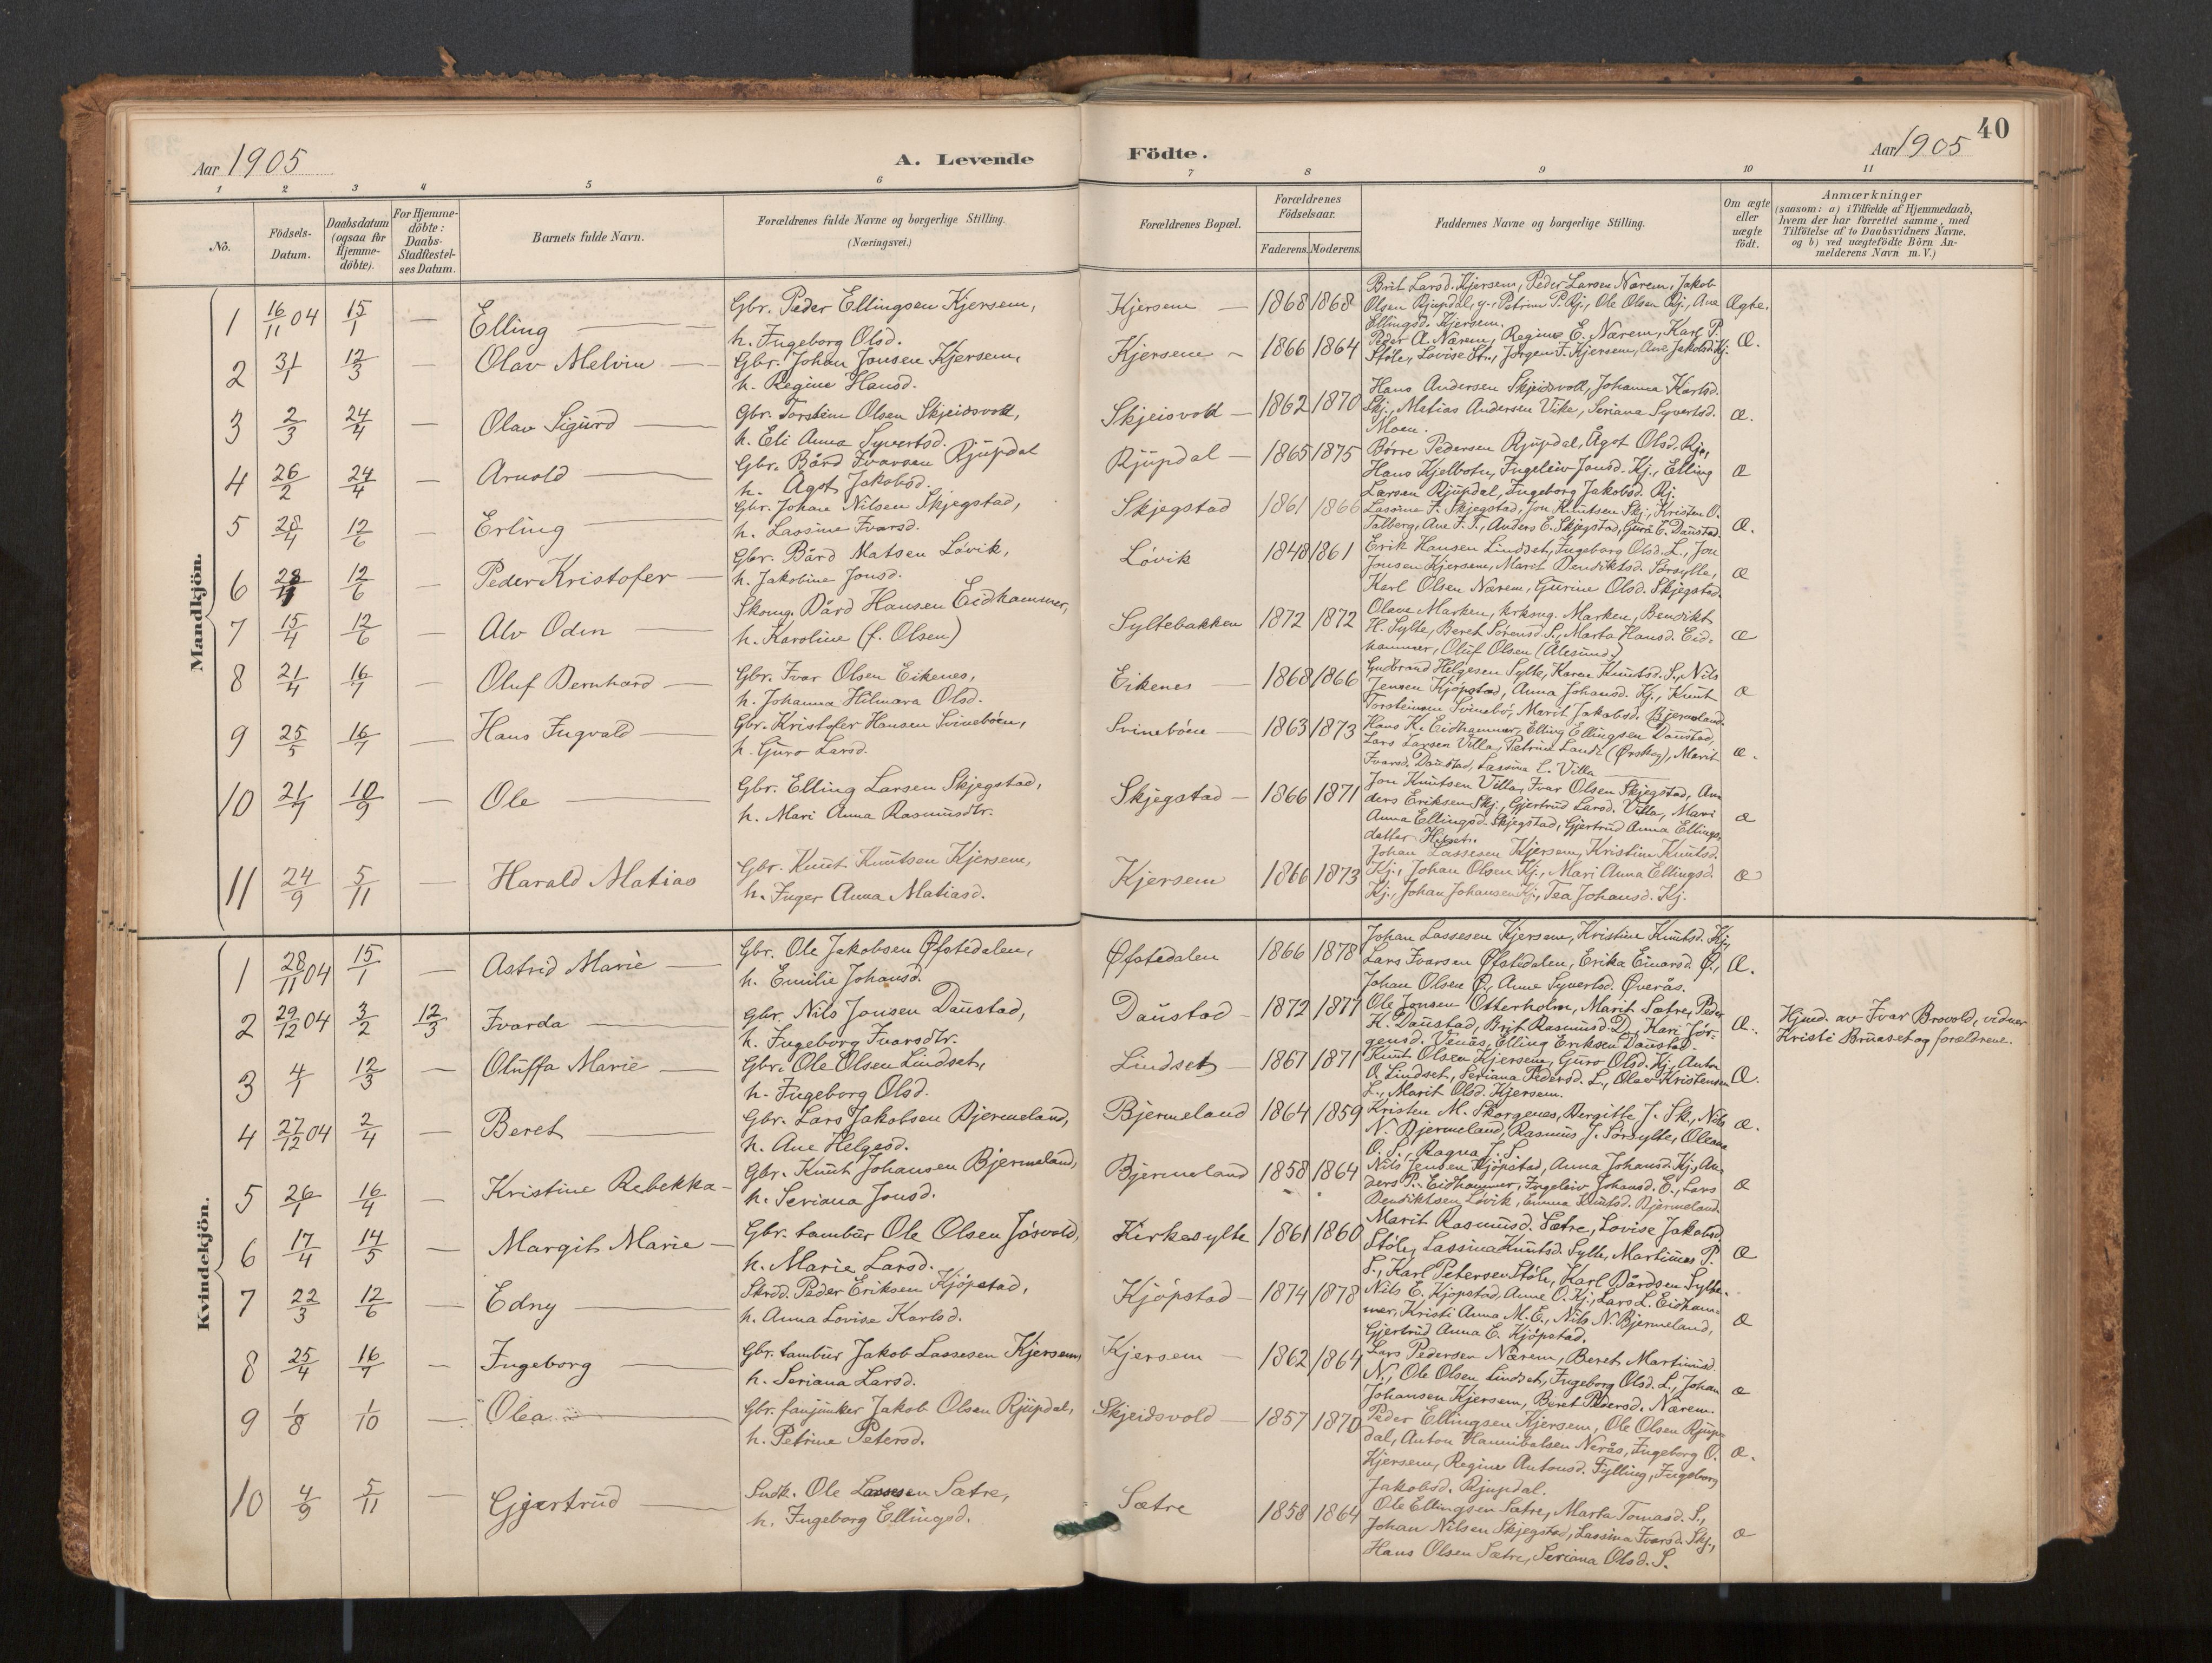 40
Aar 1905
A. Levende
Födte.
Aar 1905
1 2 3 4 5 6 7 8 9 10 11
No.
Födsels-Datum.
Daabsdatum (ogsaa for Hjemme-döbte).
For Hjemme-döbte: Daabs-Stadfæstel-ses Datum.
Barnets fulde Navn.
Forældrenes fulde Navne og borgerlige Stilling.
(Næringsvei.)
Forældrenes Bopæl.
Forældrenes Födselsaar.
Faderens. Moderens.
Faddernes Navne og borgerlige Stilling.
Om ægte eller uægte födt.
Anmærkninger
(saasom: a) i Tilfælde af Hjemmedaab,
hvem der har forrettet samme, med
Tilföielse af to Daabsvidners Navne,
og b) ved uægtefödte Börn An-
melderens Navn m. V.)
Mandkjön.
1 16/11 04 15/1 — Elling — Gbr. Peder Ellingsen Kjersem,
h. Ingeborg Olsd.
Kjersem — 1868 1868 Brit Larsd. Kjersem, Peder Larsen Nærem, Jakob
Olsen Rjupdal, g., Petrine P. Rj., Ole Olsen Rj., Ane
Ellingsd. Kjersem.
Ægte.
2 31/1 12/3 — Olav Melvin — Gbr. Johan Jonsen Kjersem,
h. Regine Hansd.
Kjersem — 1866 1864 Peder A. Nærem, Regine E. Nærem, Karl P.
Støle, Lovise St., Jørgen F. Kjersem, Ane Jakobsd. Kj.
Æ.
3 2/3 24/4 — Olav Sigurd — Gbr. Torstein Olsen Skjeidsvoll,
h. Eli Anna Syvertsd.
Skjeisvoll — 1862 1870 Hans Andersen Skjeidsvoll, Johanna Karlsd.
Skj., Matias Andersen Vike, Seriana Syvertsd.
Moen.
æ.
4 26/2 24/4 — Arnold — Gbr. Bård Ivarsen Rjupdal
h. Ågot Jakobsd.
Rjupdal — 1865 1875 Børre Pedersen Rjupdal, Ågot Olsd. Rj.,
Hans Kjelbotn, Ingeleiv Jonsd. Kj., Elling
Larsen Rjupdal, Ingeborg Jakobsd. Rj.
æ
5 28/4 12/6 — Erling — Gbr. Johan Nilsen Skjegstad,
h. Lassine Ivarsd.
Skjegstad 1861 1866 Lassine F. Skjegstad, Jon Knutsen Skj., Kristen O.
Talberg, Ane F. T., Anders E. Skjegstad, Guro E. Daustad.
Æ.
6 12/6 — Peder Kristofer — Gbr. Bård Matsen Løvik,
h. Jakobine Jonsd.
Løvik 1848 1861 Erik Hansen Lindset, Ingeborg Olsd. L., Jon
Jonsen Kjersem, Marit Bendiktsd. Sørsylte,
Karl Olsen Nærem, Gurine Olsd. Skjegstad.
æ
7 15/4 12/6 — Alv Odin — Skomg. Bård Hansen Eidhammer,
h. Karoline (f. Olsen)
Syltebakken 1872 1872 Olave Marken, krksng. Marken, Bendikt
H. Sylte, Beret Sørensd. S., Marta Hansd. Eid-
hammer, Oluf Olsen (Ålesund.)
æ
8 21/4 16/7 — Oluf Bernhard — Gbr. Ivar Olsen Eikenes,
h. Johanna Hilmara Olsd.
Eikenes — 1868 1866 Gudbrand Helgesen Sylte, Karen Knutsd. S., Nils
Jensen Kjøpstad, Anna Johansd. Kj., Knut
Torsteinsen Svinebø, Marit Jakobsd. Bjermeland.
æ
9 25/5 16/7 — Hans Ingvald — Gbr. Kristofer Hansen Svinebøen,
h. Guro Larsd.
Svinebøen — 1863 1873 Hans K. Eidhammer, Elling Ellingsen Daustad,
Lars Larsen Villa, Petrine Landi (Ørskog), Marit
Ivarsd. Daustad, Lassina L. Villa
æ.
10 21/7 10/9 — Ole — Gbr. Elling Larsen Skjegstad,
h. Mari Anna Rasmusdtr.
Skjegstad — 1866 1871 Jon Knutsen Villa, Ivar Olsen Skjegstad, An-
ders Eriksen Skj., Gjertrud Larsd. Villa, Mari
Anna Ellingsd. Skjegstad, Gjertrud Anna Ellings-
datter
æ
11 24/9 5/11 — Harald Matias Gbr. Knut Knutsen Kjersem,
h. Inger Anna Matiasd.
Kjersem 1866 1873 Johan Lassesen Kjersem, Kristine Knutsd.
Kj., Johan Olsen Kj., Mari Anna Ellingsd.
Kj., Johan Johansen Kj., Tea Johansd. Kj.
æ
Kvindekjön.
1 28/11 04 15/1 — Astrid Marie — Gbr. Ole Jakobsen Øfstedalen,
h. Emilie Johansd.
Øfstedalen 1866 1878 Johan Lassesen Kjersem, Kristine Knutsd. Kj.,
Lars Ivarsen Øfstedalen, Erika Einarsd. Ø.,
Johan Olsen Ø., Anne Syvertsd. Øverås.
Æ.
2 29/12 04 3/2 12/3 Ivarda — Gbr. Nils Jonsen Daustad,
h. Ingeborg Ivarsdtr.
Daustad — 1872 1877 Ole Jonsen Otterholm, Marit Sætre, Peder
K. Daustad, Brit Rasmusd. D., Kari Jør-
gensd. Venås, Elling Eriksen Daustad
Æ.
Hjmd. av Ivar Brovold, vidner
Kristi Bruaset og forældrene.
3 4/1 12/3 — Oluffa Marie — Gbr. Ole Olsen Lindset,
h. Ingeborg Olsd.
Lindset — 1867 1871 Knut Olsen Kjersem, Guro Olsd. Kj., Anton
O. Lindset, Seriana Pedersd. L., Olav Kristensen
L., Marit Olsd. Kjersem.
Æ.
4 27/12 04 2/4 — Beret — Gbr. Lars Jakobsen Bjermeland,
h. Ane Helgesd.
Bjermeland 1864 1859 Kristen M. Skorgenes, Bergitte J. Sk., Nils
N. Bjermeland, Rasmus J. Sørsylte, Oleane
O. S., Ragna J. S.
æ.
5 26/1 16/4 — Kristine Rebekka — Gbr. Knut Johansen Bjermeland,
h. Seriana Jonsd.
Bjermeland 1858 1864 Nils Jensen Kjøpstad, Anna Johansd. Kj., An-
ders P. Eidhammer, Ingeleiv Johansd. E., Lars
Bendiktsen Løvik, Emma Knutsd. Bjermeland
æ
6 17/4 14/5 — Margit Marie — Gbr. tambur Ole Olsen Jøsvold,
h. Marie Larsd.
Kirkesylte 1861 1860 Marit Rasmusd. Sætre, Lovise Jakobsd.
Støle, Lassina Knutsd. Sylte, Martines P.
S., Karl Petersen Støle, Karl Bårdsen Sylte.
æ
7 22/3 12/6 — Edny — Skrdd. Peder Eriksen Kjøpstad,
h. Anna Lovise Karlsd.
Kjøpstad — 1874 1878 Nils E. Kjøpstad, Anne O. Kj., Lars L. Eidham-
mer, Kristi Anna M. E., Nils N. Bjermeland,
Gjertrud Anna E. Kjøpstad.
æ
8 25/4 16/7 — Ingeborg — Gbr. tambur Jakob Lassesen Kjersem,
h. Seriana Larsd.
Kjersem — 1862 1864 Lars Pedersen Nærem, Beret Martinusd.
N., Ole Olsen Lindset, Ingeborg Olsd. L., Johan
Johansen Kjersem, Beret Pedersd. Nærem.
æ
9 1/8 1/10 — Olea — Gbr. fanjunker Jakob Olsen Rjupdal,
h. Petrine Petersd.
Skjeidsvold — 1857 1870 Peder Ellingsen Kjersem, Ole Olsen Rjup-
dal, Anton Hannibalsen Nerås, Ingeborg O.
Kjersem, Regine Antonsd. Fylling, Ingeborg
Jakobsd. Rjupdal.
æ.
10 4/9 5/11 — Gjertrud — Sndk. Ole Lassesen Sætre,
h. Ingeborg Ellingsd.
Sætre 1858 1864 Ole Ellingsen Sætre, Marta Tomasd. S.,
Johan Nilsen Skjegstad, Lassina Ivarsd. Skj.,
Hans Olsen Sætre, Seriana Olsd. S.
æ